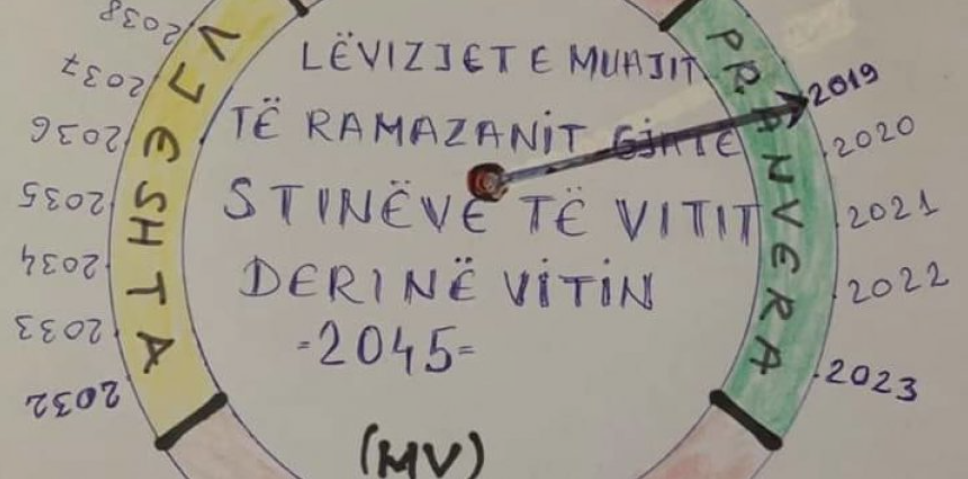 LËVIZJET E MUAJIT
TË RAMAZANIT GJATË
STINËVE TË VITIT
DERI NË VITIN
-2045-
(MV)
PRANVERA
2019
2020
2021
2022
2023
VJESHTA
2032
2033
2034
2035
2036
2037
2038